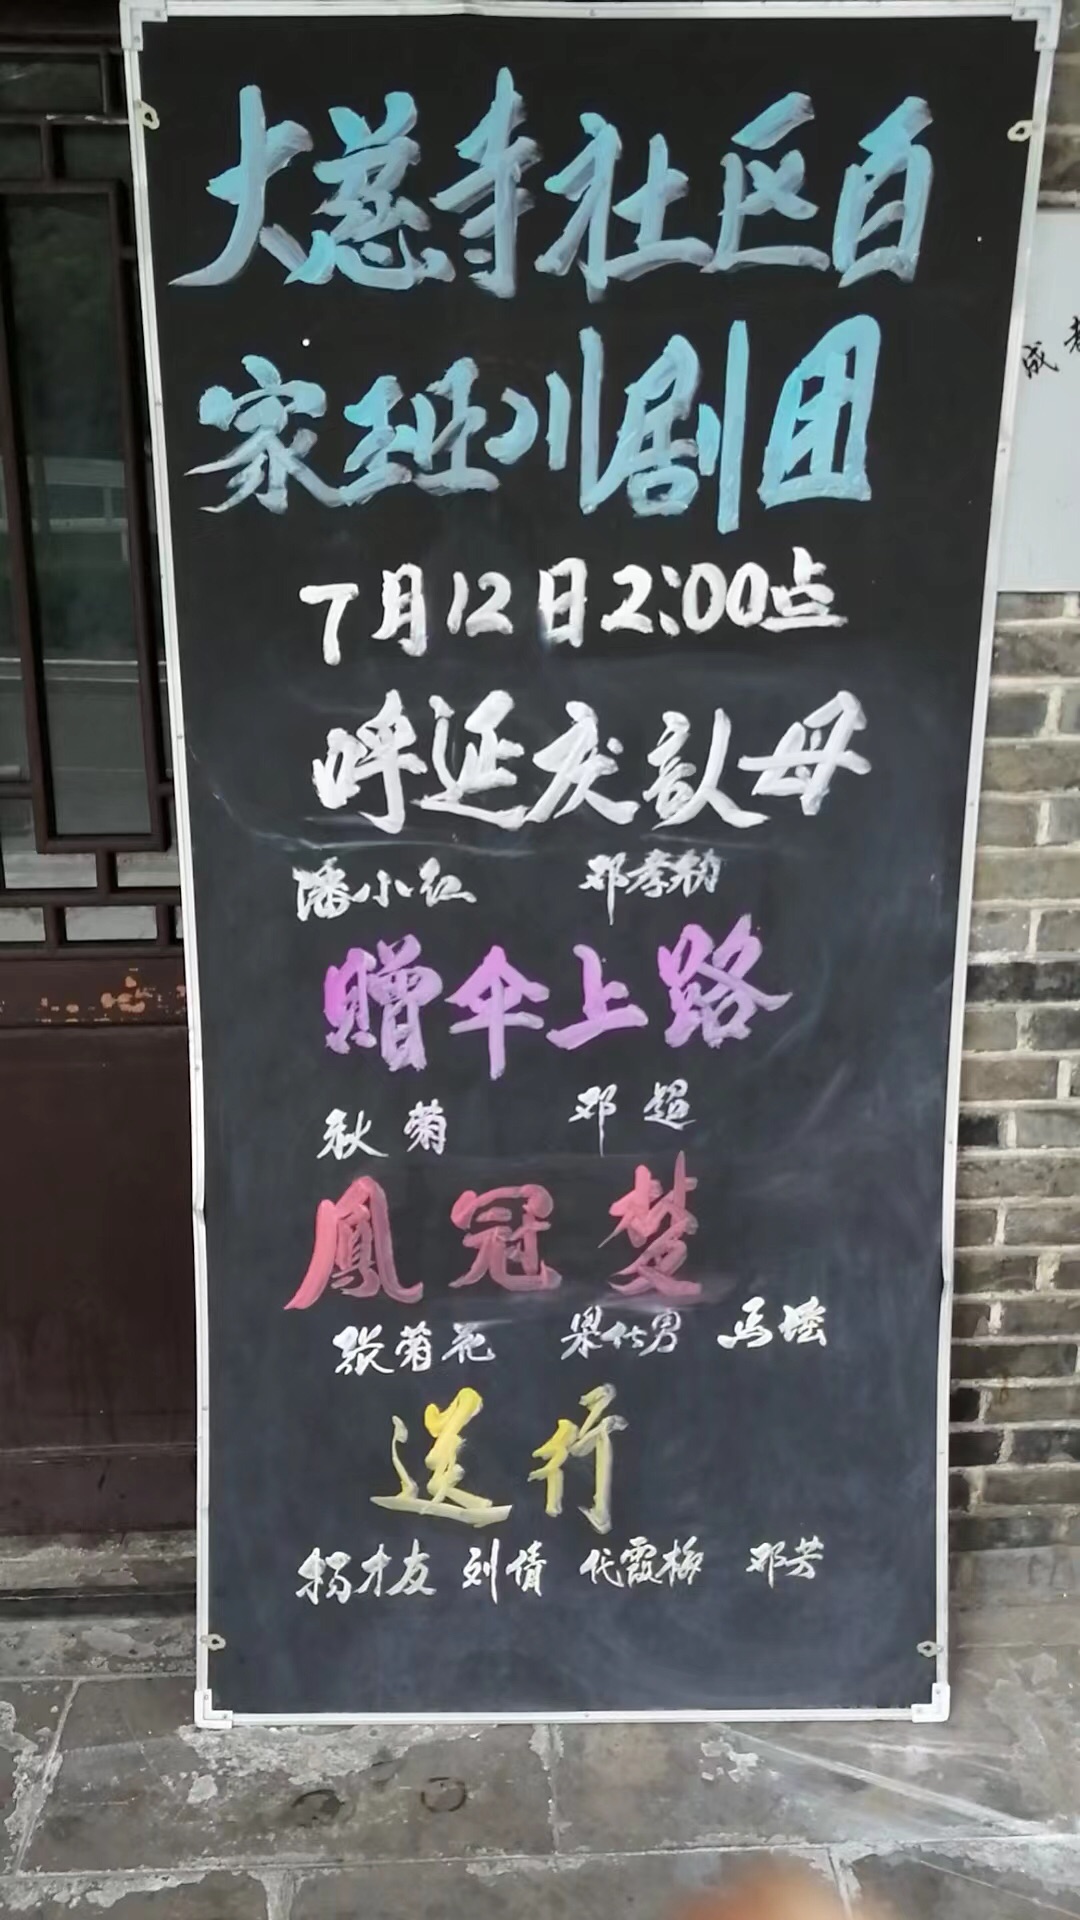 大慈寺社区百
家班川剧团
7月12日2:00点
呼延庆认母
潘小红 邓孝勒
赠伞上路
秋菊 邓超
鳳冠梦
张菊花 果仕男 马瑶
送行
杨才友 刘倩 代霞柳 邓芳
成